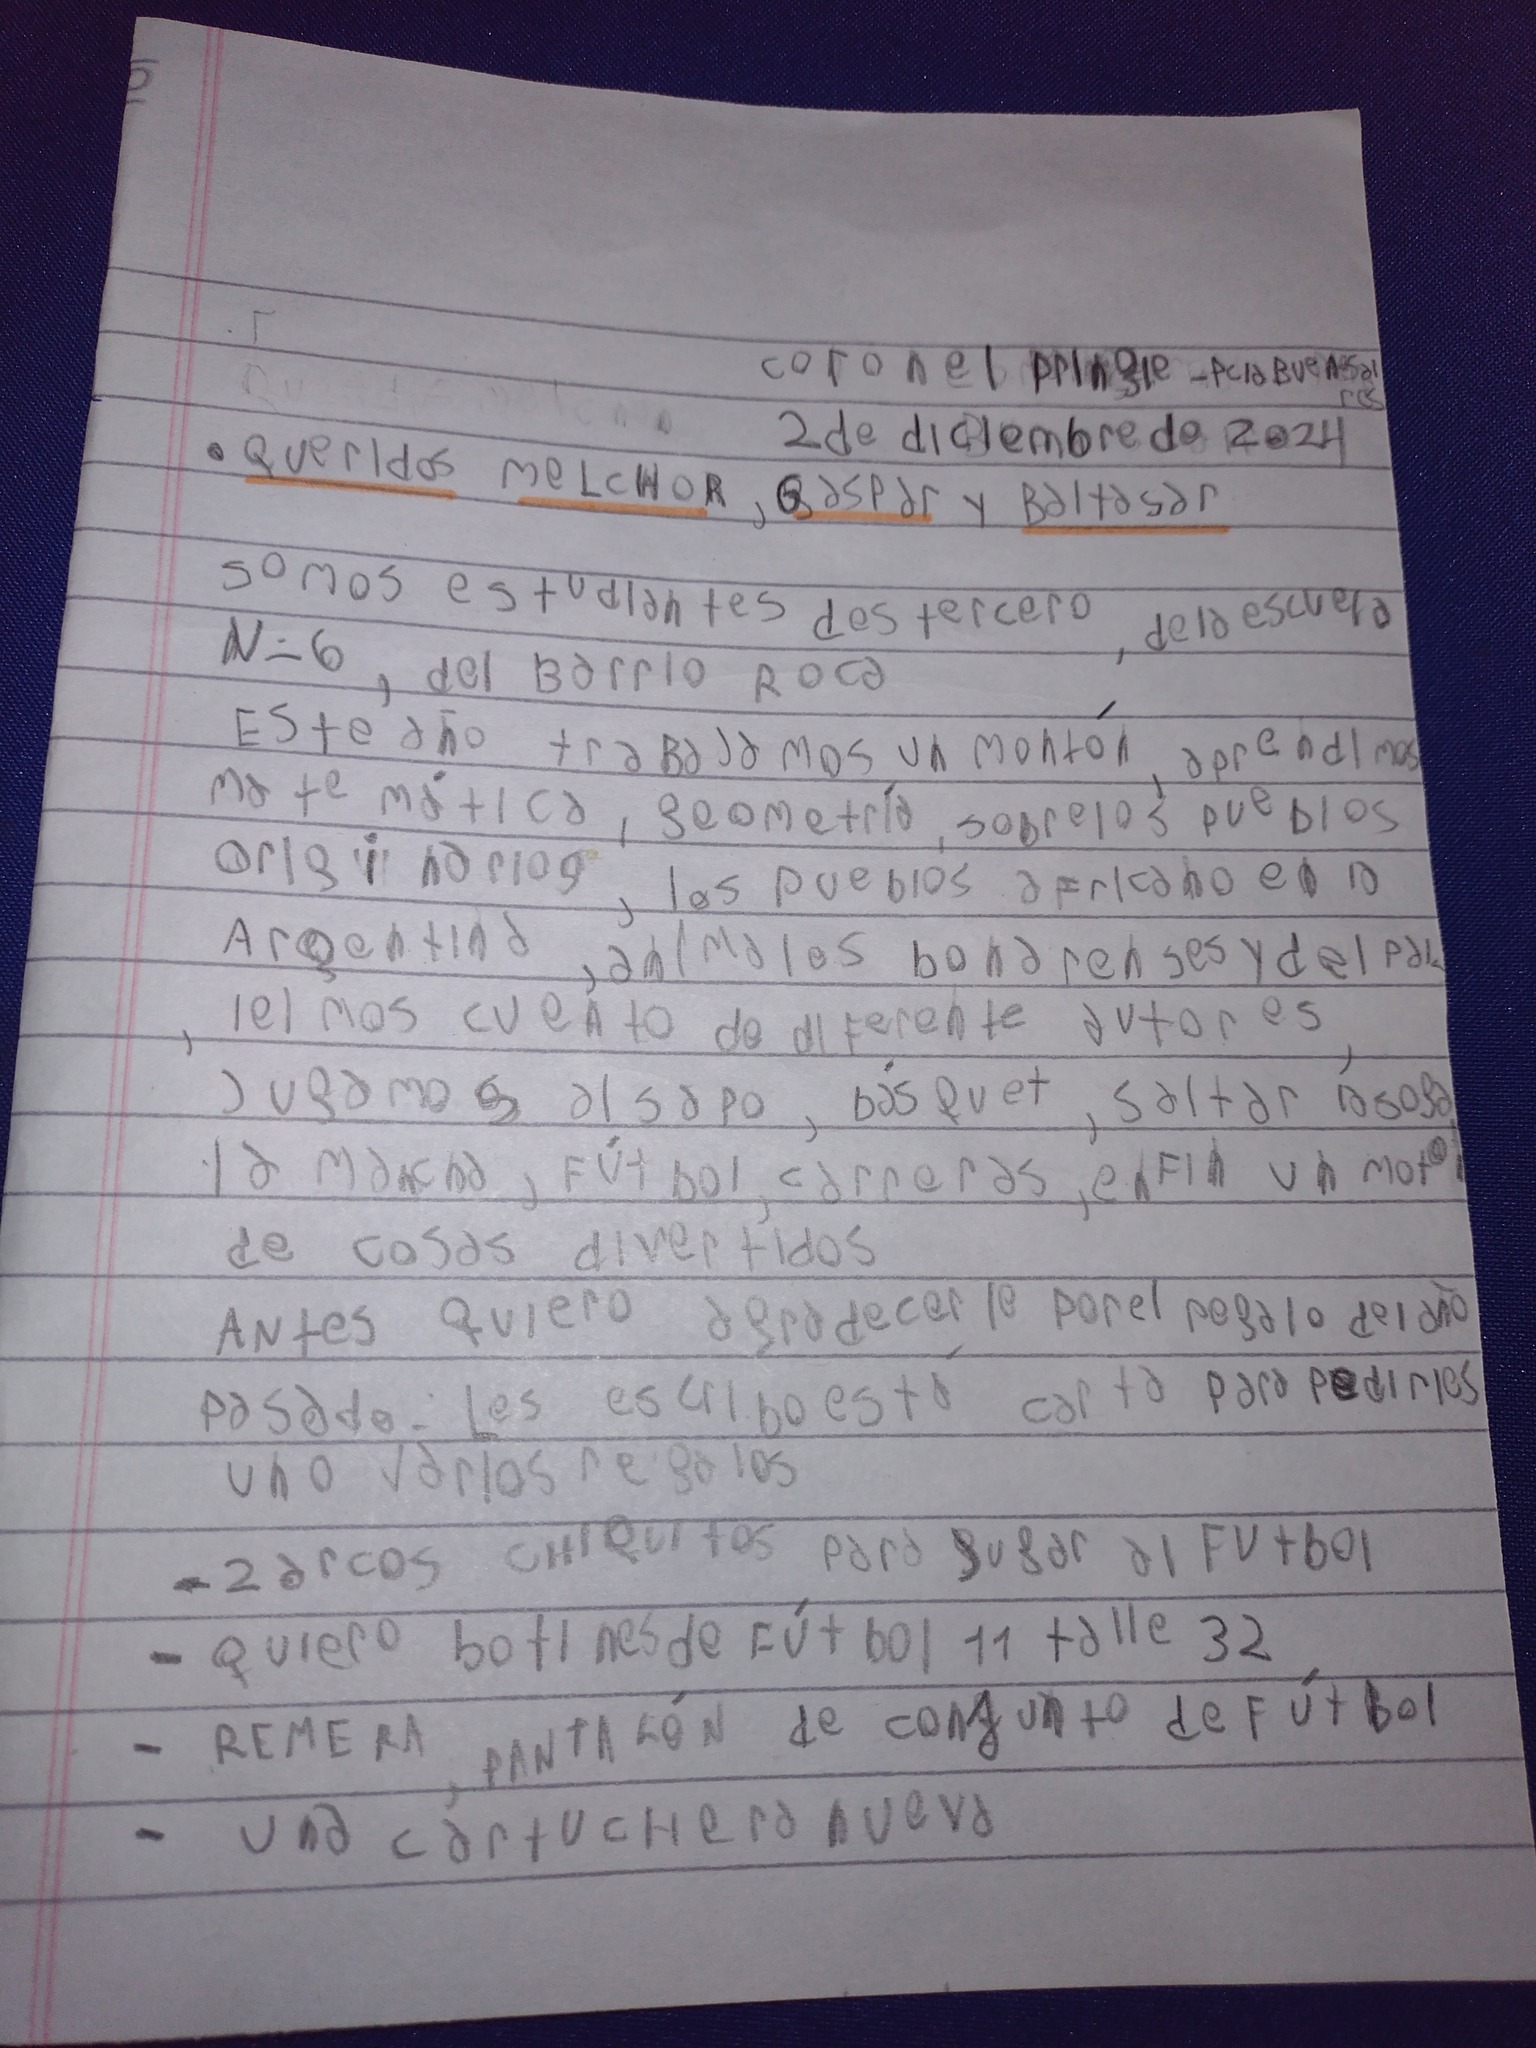 coronel pringle - pcia Buenosai
res
2 de diciembre de 2024
• Queridos MeLCHOR, Gaspar y Baltasar
somos estudiantes des tercero, dela escuela
N=6, del Barrio ROca
Este año traBaJamos un montón, aprendimos
matemática, geometría, sobrelos pueblos
originarios, los pueblos aFricano en a
Argentina, animalos bonarenses y del paí
, leimos cuento de diFerente autores,
Jugamos al sapo, básquet, saltar asoga
la mancha, FÚtbol, carreras, enFin un moto
de cosas divertidos
ANtes Quiero agradecerle porel regalo delaño
pasado. Les escriboestá carta para pedirles
uno varios regalos
- 2 arcos CHIQUITOS para gugar al FUtbol
- Quiero botinesde FÚtbol 11 talle 32
- REMERA, PANTALÓN de congunto de FÚtbol
- una cartucHera nueva